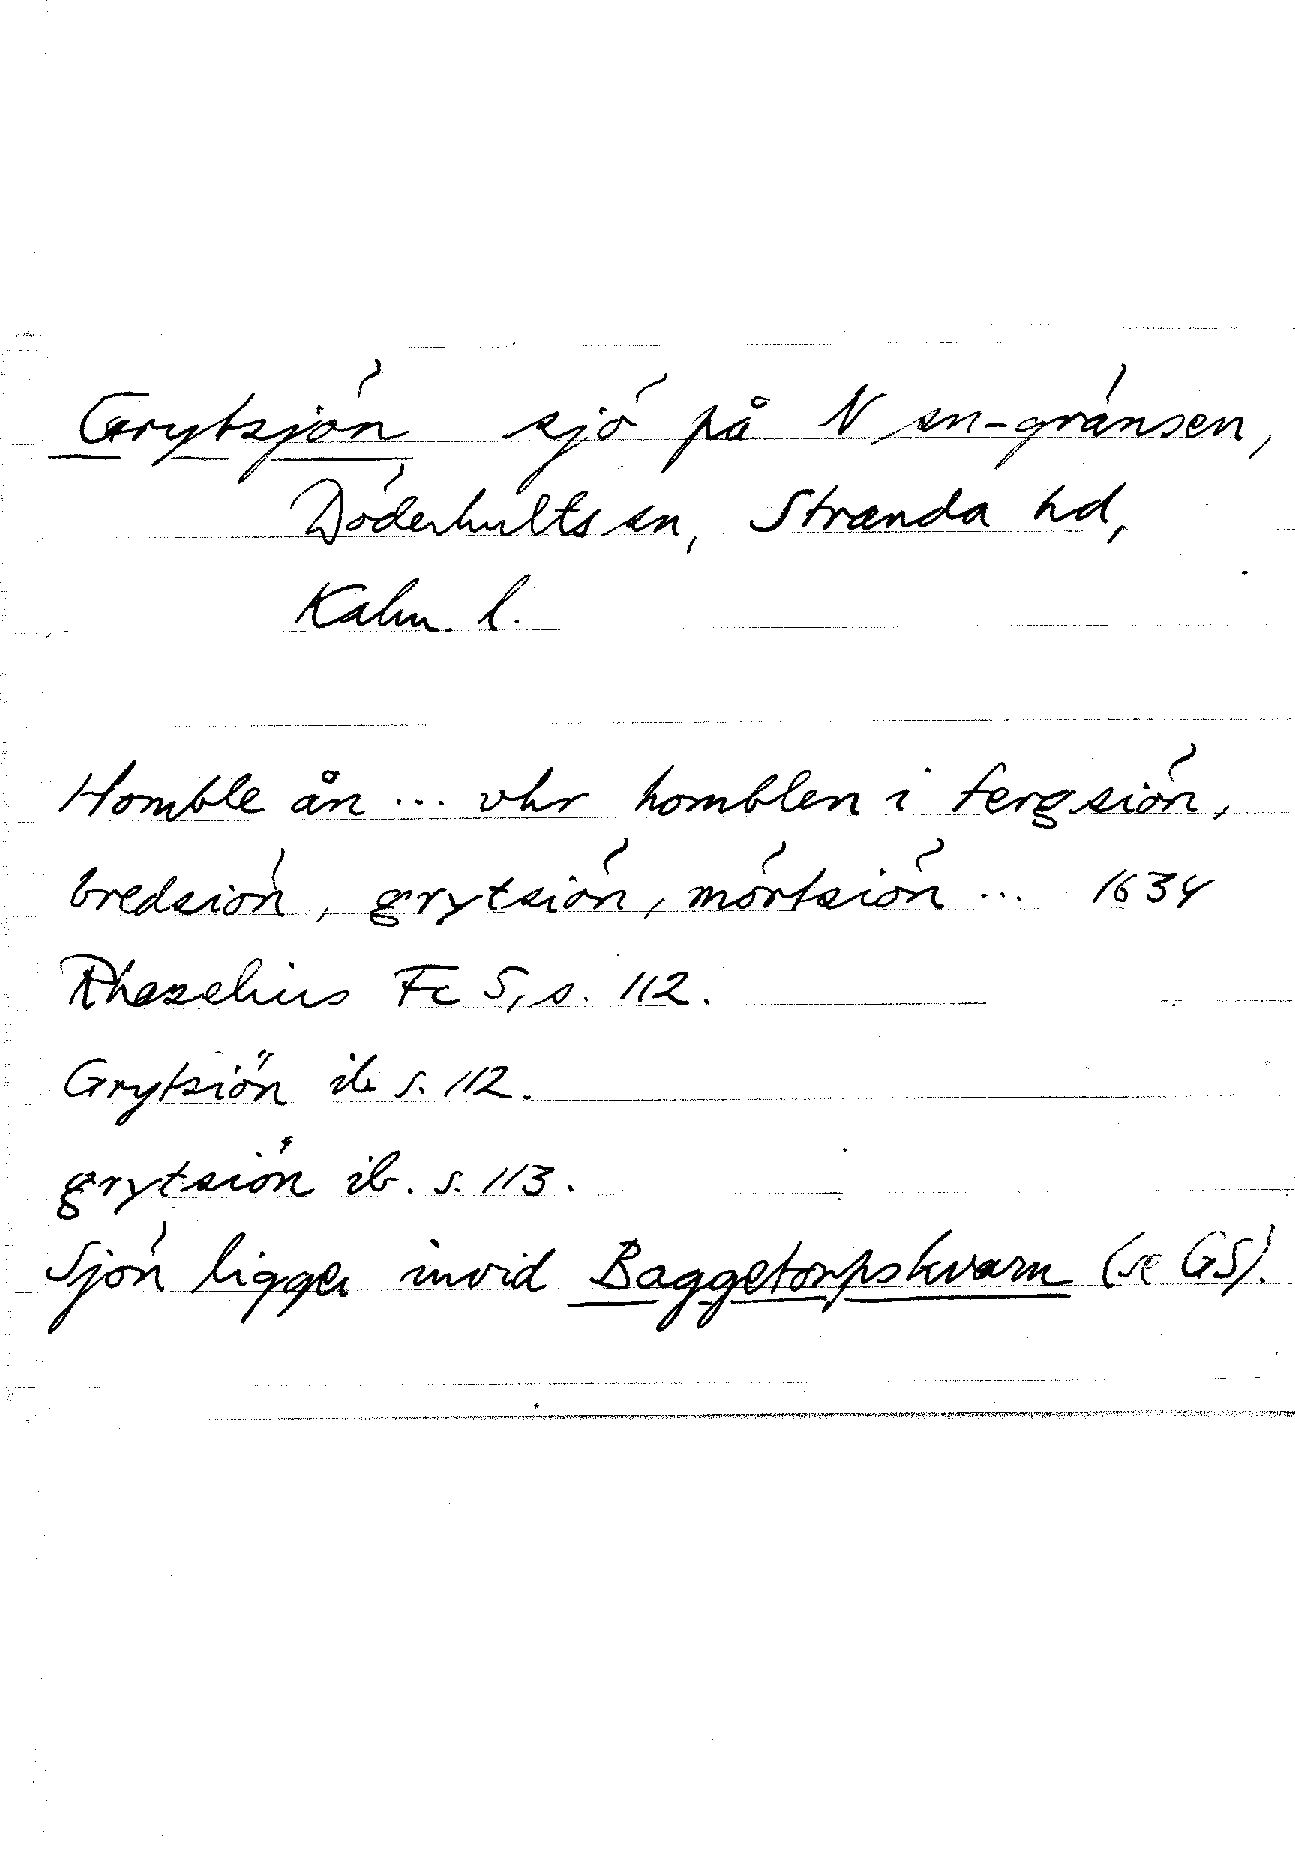 Grytsjön sjö på N sn-gränsen,
Döderhults sn, Stranda hd,
Kalm. l.
Homble ån ... vhr homblen i fergsiön,
bredsiön, grytsiön, mörtsiön ... 1634
Rhezelius Fc 5, s. 112.
Grytsiön ib s. 112.
grytsiön ib. s. 113.
Sjön ligger invid Baggetorpskvarn (se GS).